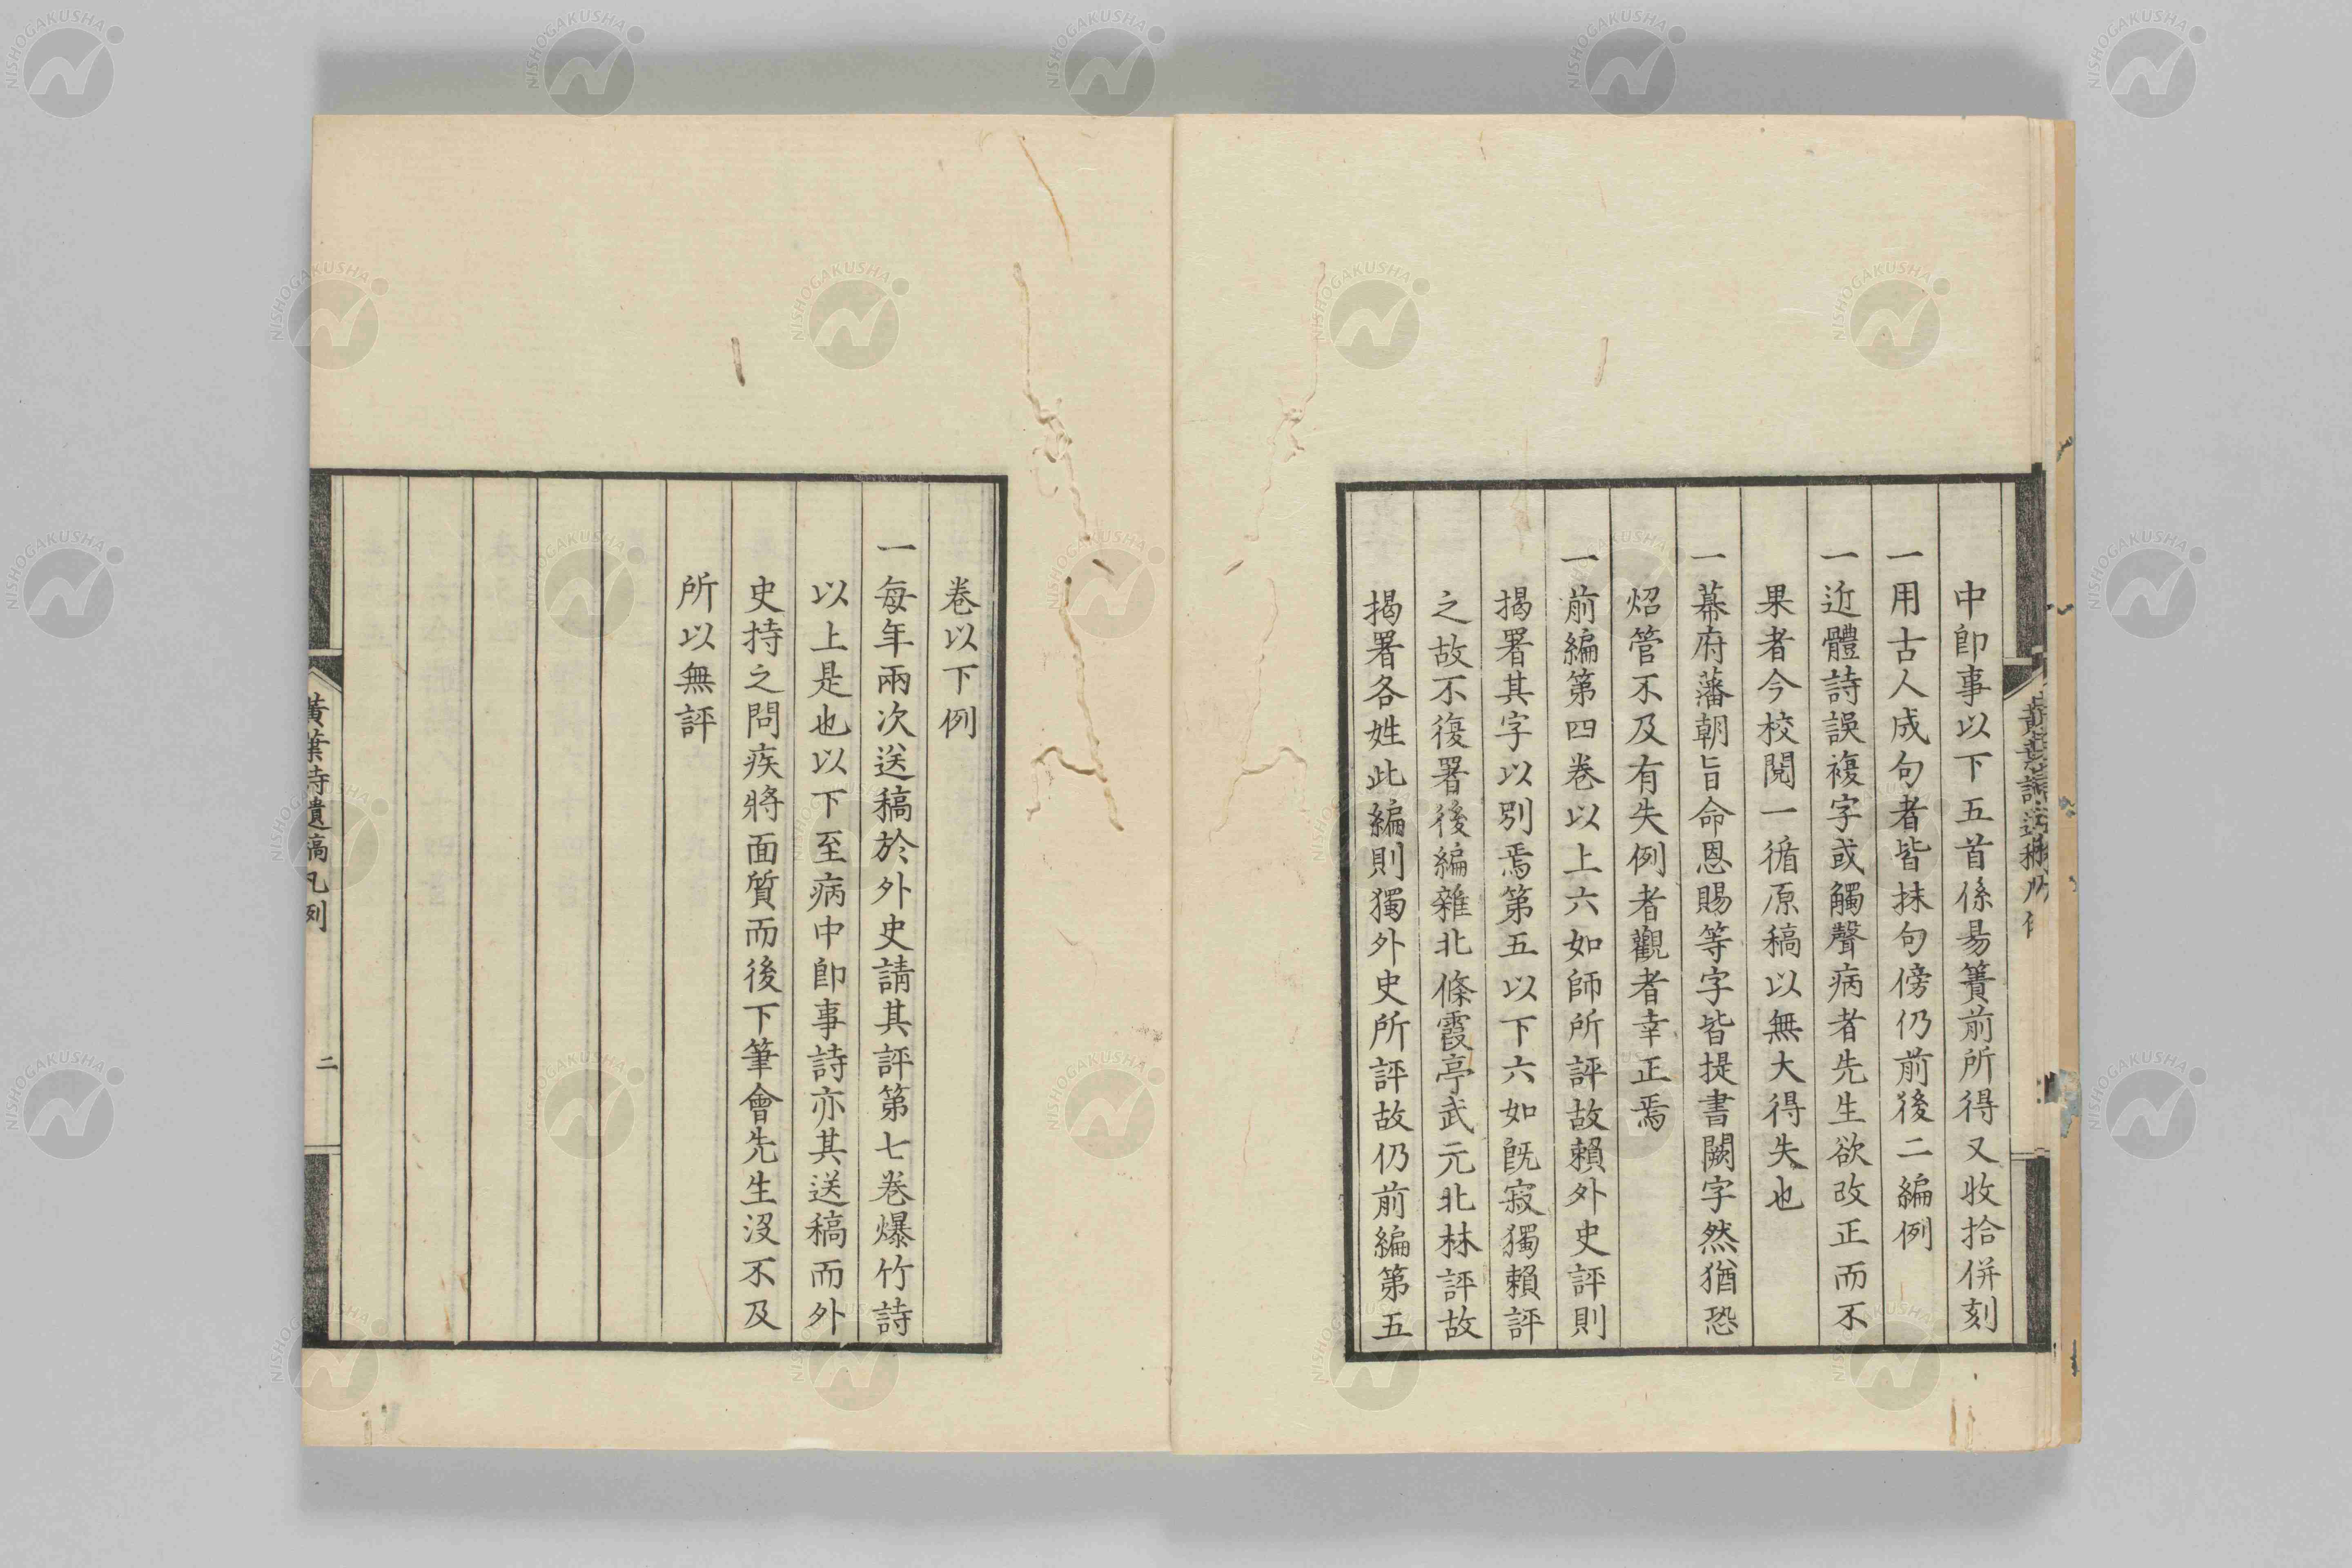 中即事以下五首係易簀前所得又收拾併刻
一用古人成句者皆抹句傍仍前後二編例
一近體詩誤複字或觸聲病者先生欲改正而不
果者今校閱一循原稿以無大得失也
一幕府藩朝旨命恩賜等字皆提書闕字然猶恐
炤管不及有失例者觀者幸正焉
一前編第四卷以上六如師所評故賴外史評則
揭署其字以別焉第五以下六如既寂獨賴評
之故不復署後編雜北條霞亭武元北林評故
揭署各姓此編則獨外史所評故仍前編第五
卷以下例
一每年兩次送稿於外史請其評第七卷爆竹詩
以上是也以下至病中即事詩亦其送稿而外
史持之問疾將面質而後下筆會先生沒不及
所以無評
黃葉詩遺稿凡例
二
NISHOGAKUSHA